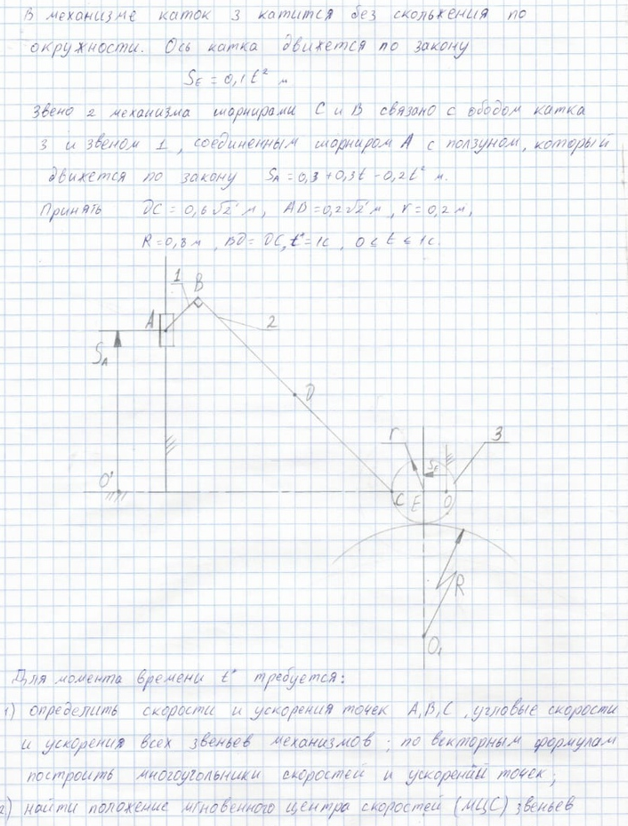 В механизме каток 3 катится без скольжения по
окружности. Ось катка движется по закону
S_E = 0,1t² м
Звено 2 механизма шарнирами С и В связано с ободом катка
3 и звеном 1, соединенным шарниром А с ползуном, который
движется по закону S_A = 0,3 + 0,3t - 0,2t² м.
Принять DC = 0,6√2 м, AB = 0,2√2 м, r = 0,2 м,
R = 0,8 м, BD = DC, t* = 1c, 0 ≤ t ≤ 1c.
1 B
A 2
S_A
D
r 3
S_E
O' C E O
R
O₁
Для момента времени t* требуется:
1) определить скорости и ускорения точек А, В, С, угловые скорости
и ускорения всех звеньев механизмов; по векторным формулам
построить многоугольники скоростей и ускорений точек;
2) найти положение мгновенного центра скоростей (МЦС) звеньев